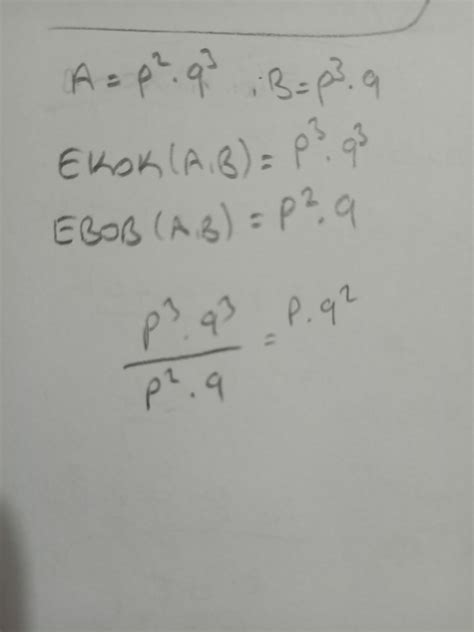 A = p² . q³ ; B = p³ . q
EKOK(A,B) = p³ . q³
EBOB(A,B) = p² . q
p³ . q³ / p² . q = p . q²